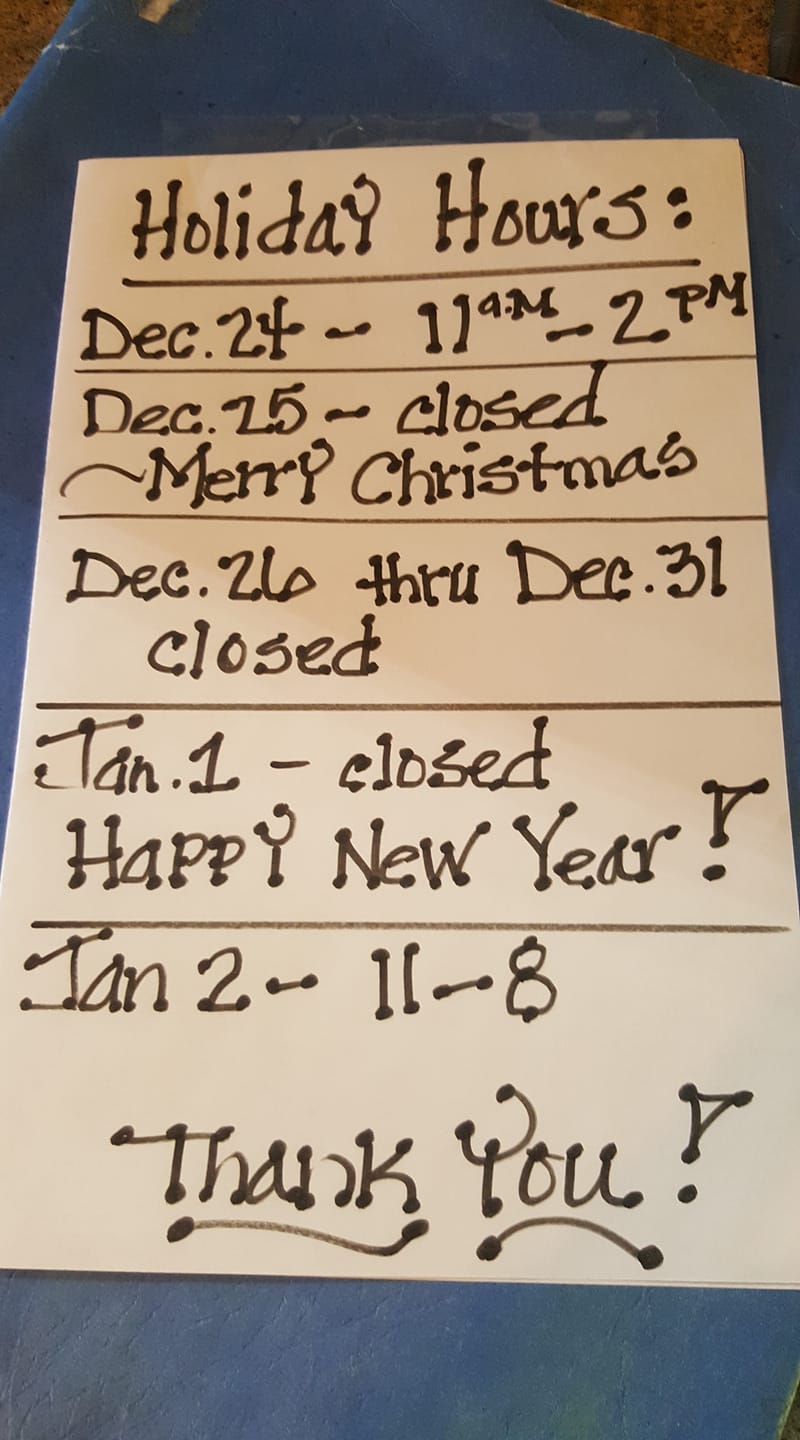 Holiday Hours:
Dec. 24 - 11 a.m - 2 PM
Dec. 25 - closed
~Merry Christmas
Dec. 26 thru Dec. 31
closed
Jan. 1 - closed
Happy New Year!
Jan 2 - 11-8
Thank You!